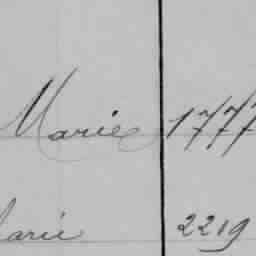 Marie 1777
arie 2219